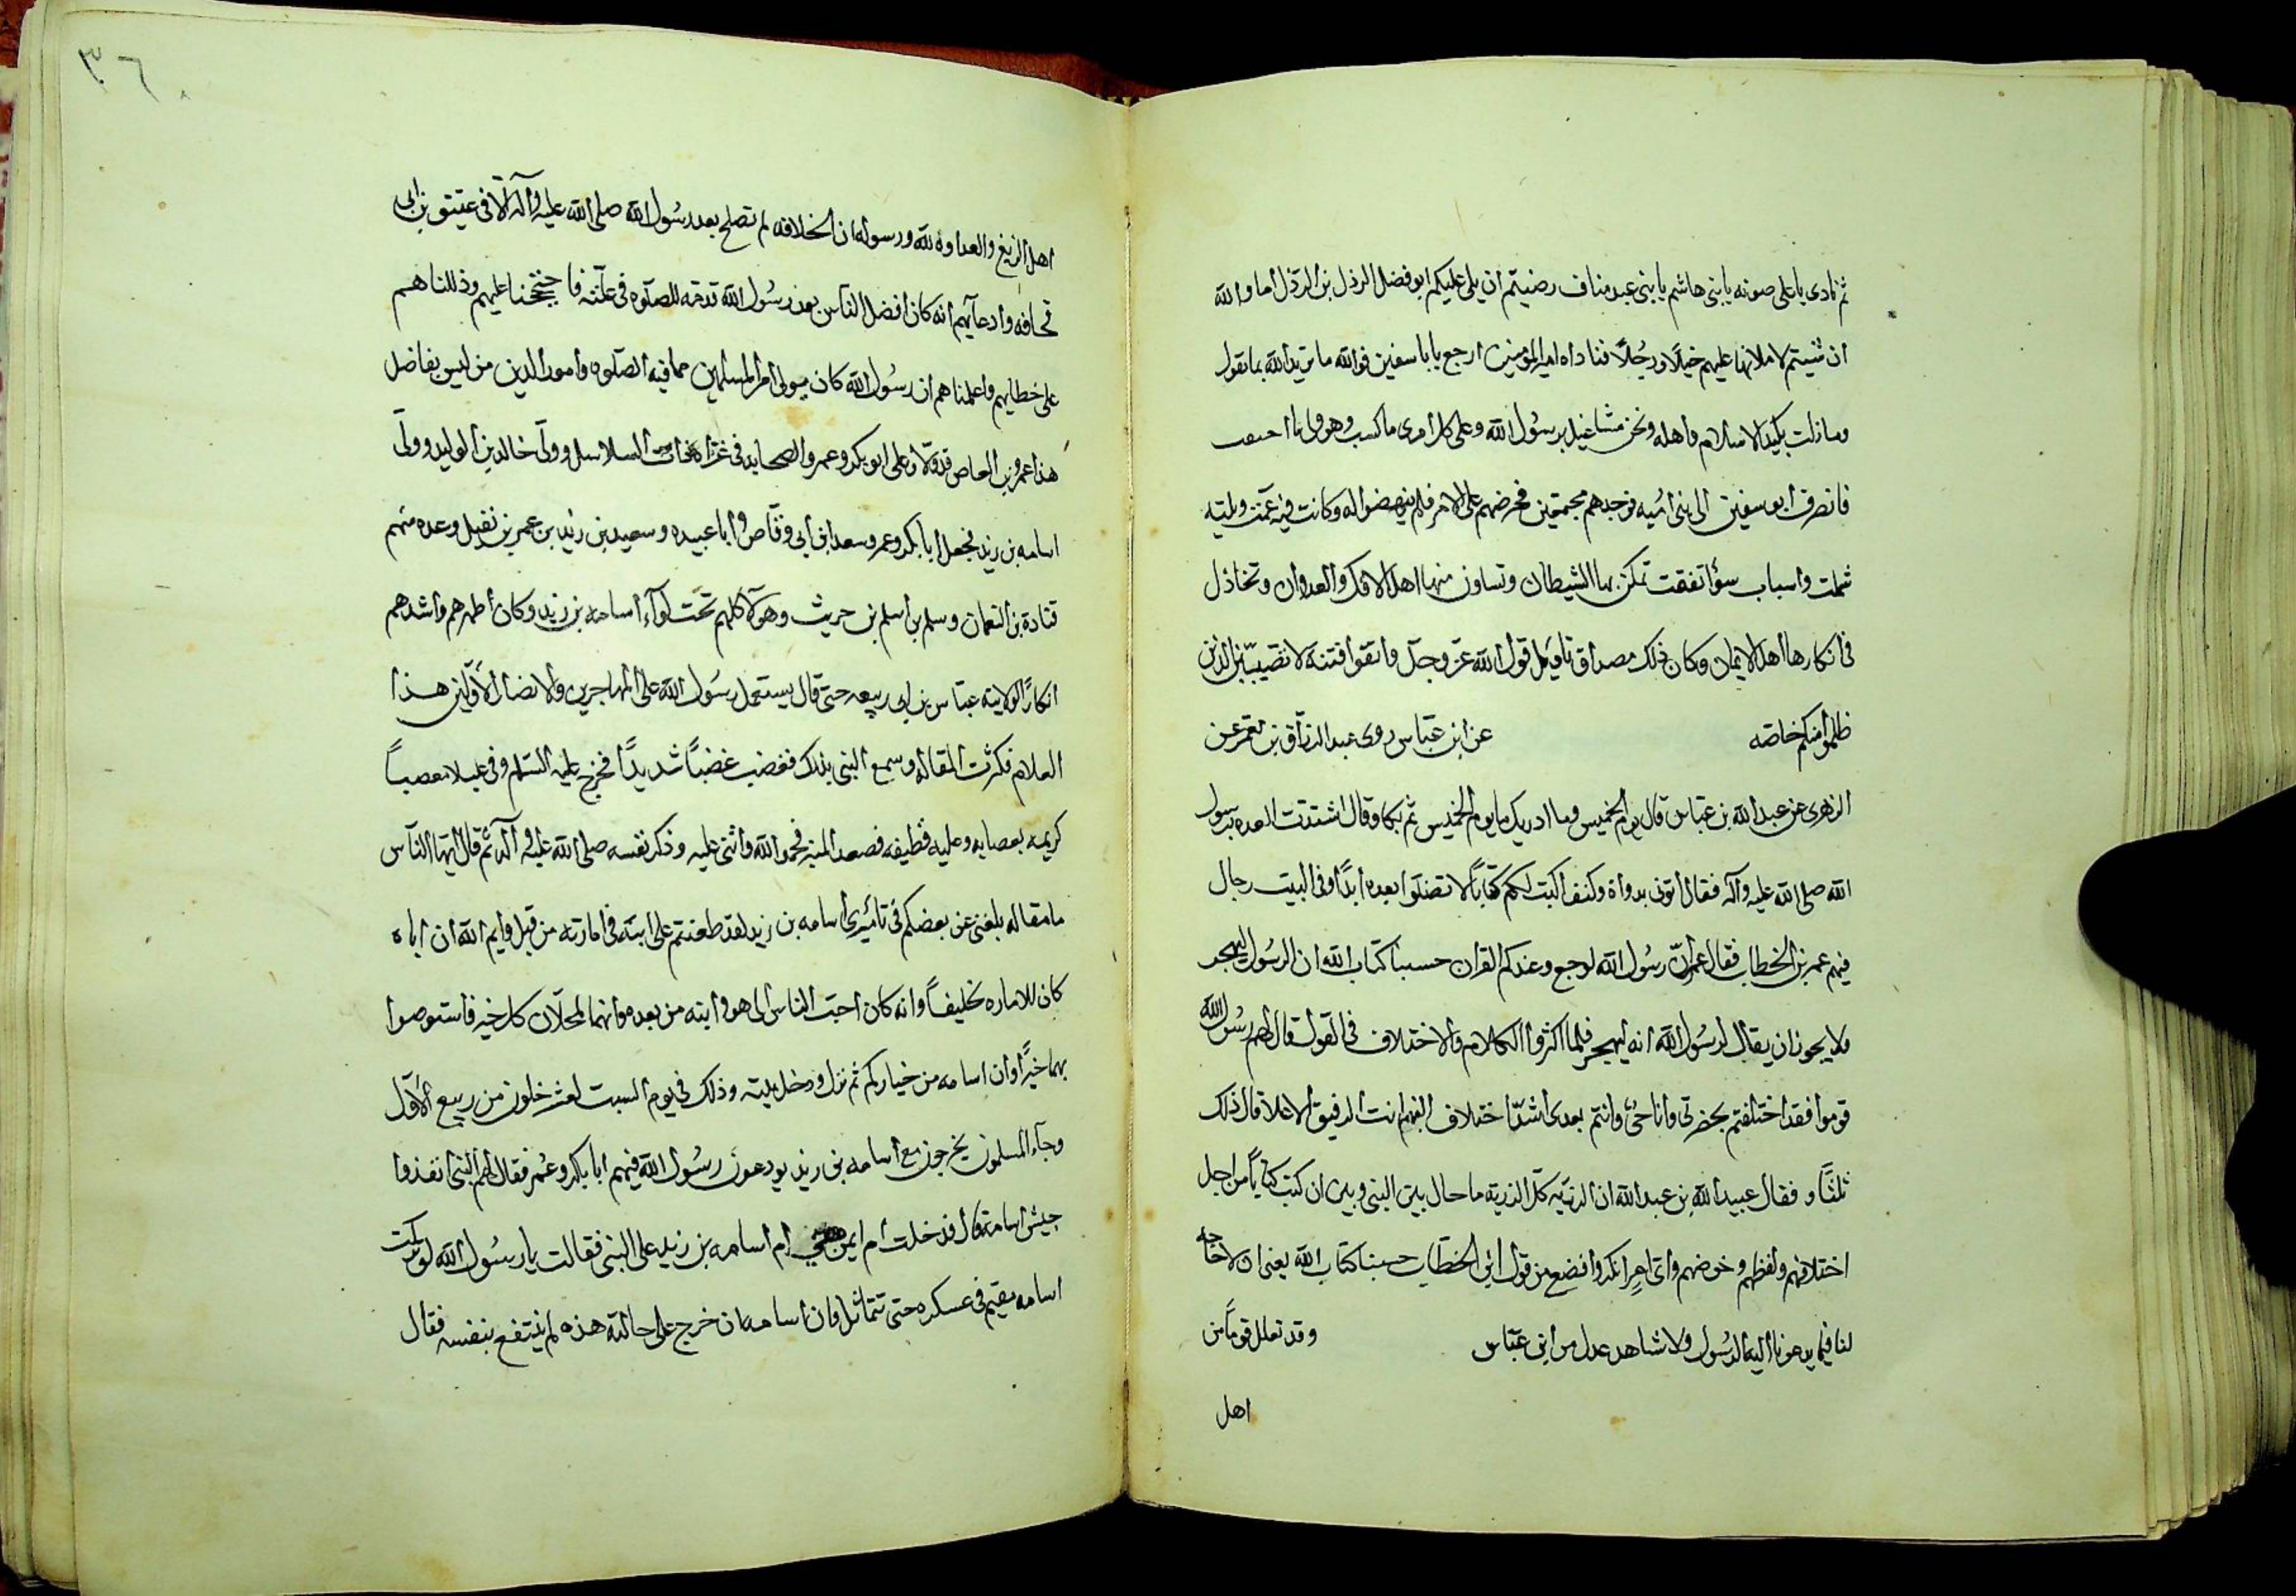 ثم نادى باعلى صوته يا بنى هاشم يا بنى عبد مناف رضيتم ان يلى عليكم ابو فضل الرذل بن الرذل اما والله
ان شيتم لاملانها عليهم خيلًا ورجُلًا فناداه امير المؤمنين ارجع يابا سفين فوالله ما تريد الله بما تقول
وما زلت تكيد الاسلام واهله ونحن مشاغيل برسُول الله وعلى كل امرى ما كسب وهو ولى ما احتقب
فانصرف ابو سفين الى بنى اميه فوجدهم مجتمعين فحرضهم على الامر فلم ينهضوا له وكانت فتنه عمّت وبليّه
شملت واسباب سؤ اتفقت تمكن بها الشيطان وتعاون منها اهل الافك والعدوان وتخاذل
فى انكارها اهل الايمان وكان ذلك مصداق تاويل قول الله عزّ وجلّ واتقوا فتنة لا تصيبّن الذين
ظلموا منكم خاصّه عن ابن عبّاس روى عبد الرزّاق بن معمر عن
الزهرى عن عبد الله بن عبّاس قال يوم الخميس وما ادريك ما يوم الخميس ثم بكا وقال اشتدت العده برسول
الله صلى الله عليه وآله فقال اتونى بدواة وكتف اكتب لكم كتابًا لا تضلّوا بعده ابدًا وفى البيت رجال
فيهم عمر بن الخطاب فقال عمر انّ رسُول الله لوجع وعندكم القران حسبنا كتاب الله ان الرسُول ليهجر
ولا يجوز ان يقال لرسُول الله انه ليهجر فلما اكثروا الكلام والاختلاف فى القول قال لهم رسُول الله
قوموا فقد اختلفتم بحضرتى وانا حىّ وانتم بعدى اشدّ اختلاف اللهم انت الرفيق الاعلا قال ذلك
ثلثًا و فقال عبيد الله بن عبد الله ان الرزيّه كلّ الرزيّه ما حال بين النبى وبين ان كتب كتابًا من اجل
اختلافهم ولغظهم وخوضهم واى امرٍ انكر وافضع من قول ابن الخطاب حسبنا كتاب الله يعنى ان لا حاجه
لنا فيما يدعونا اليه الرسُول ولا شاهد عدل من ابن عبّاس وقد تعلل قومًا من
اهل
٣٦٠
اهل الزيغ والعداوة لله ورسوله ان الخلافه لم تصلح بعد رسُول الله صلى الله عليه وآله الّا فى عتيق بن ابى
قحافه وادعآيهم انه كان افضل الناس بعد رسُول الله قدمه للصلوه فى علّته فاحتججنا عليهم وذللناهم
على خطايهم واعلمناهم ان رسُول الله كان يولى امر المسلمين مما فيه الصلوه وامور الدين من ليس بفاضل
هذا عمرو بن العاص قد ولّاه على ابو بكر وعمر والصحابه فى غزاة ذات السلاسل وولّى خالد بن الوليد وولّا
اسامه بن زيد فجعل ابا بكر وعمر وسعد ابن ابى وقّاص وابا عبيده وسعيد بن زيد بن عمر بن نفيل وعده منهم
قتادة بن النعمان وسلم بن اسلم بن حريث وهولآ كلهم تحت لوآء اسامه بن زيد وكان اظهرهم واشدهم
انكارًا لولايته عبّاس بن ابى ربيعه حتى قال يستعمل رسُول الله على المهاجرين والانصار الاولين هذا
الغلام فكثرت المقاله وسمع النبى بذلك فغضب غضبًا شديدًا فخرج عليه السّلم وفى عليلا معصباً
كريمه بعصابه وعليه قطيفه فصعد المنبر فحمد الله واثنى عليه وذكر نفسه صلى الله عليه وآله ثم قال ايها النّاس
ما مقاله بلغنى عن بعضكم فى تاميرى اسامه بن زيد لقد طعنتم على ابيه فى امارته من قبل وايم الله ان اباه
كان للاماره لخليقاً وانه كان احبّ الناس الى هو وابنه من بعده وانهما لمحلّان كل خير فاستوصوا
بهما خيرًا وان اسامه من خياركم ثم نزل ودخل بيته وذلك فى يوم السبت لعشر خلون من ربيع الاوّل
وجآء المسلمون يخرجون مع اسامه بن زيد يودعون رسُول الله فيهم ابا بكر وعُمر فقال لهم النبى انفذوا
جيش اسامة قال فدخلت ام ايمن ام اسامه بن زيد على النبى فقالت يا رسُول الله لو تركت
اسامه مقيم فى عسكره حتى تتماثل وان اسامه ان خرج على حالته هذه لم ينتفع بنفسه فقال